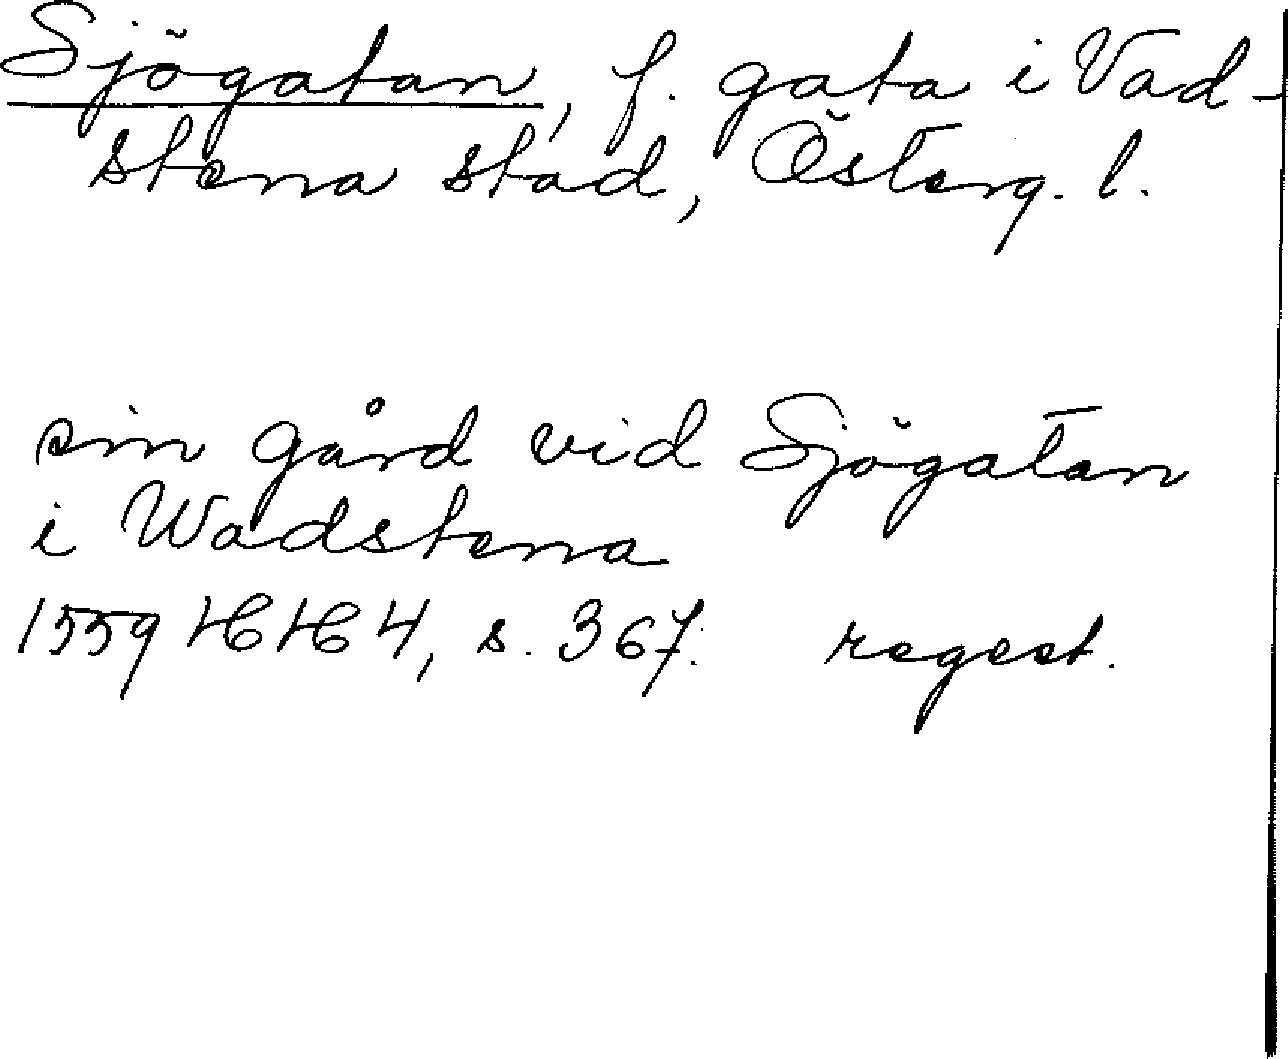 Sjögatan, f. gata i Vad-
stena stad, Österg. l.
sin gård vid Sjögatan
i Wadstena
1559 HH 4, s. 367. regest.